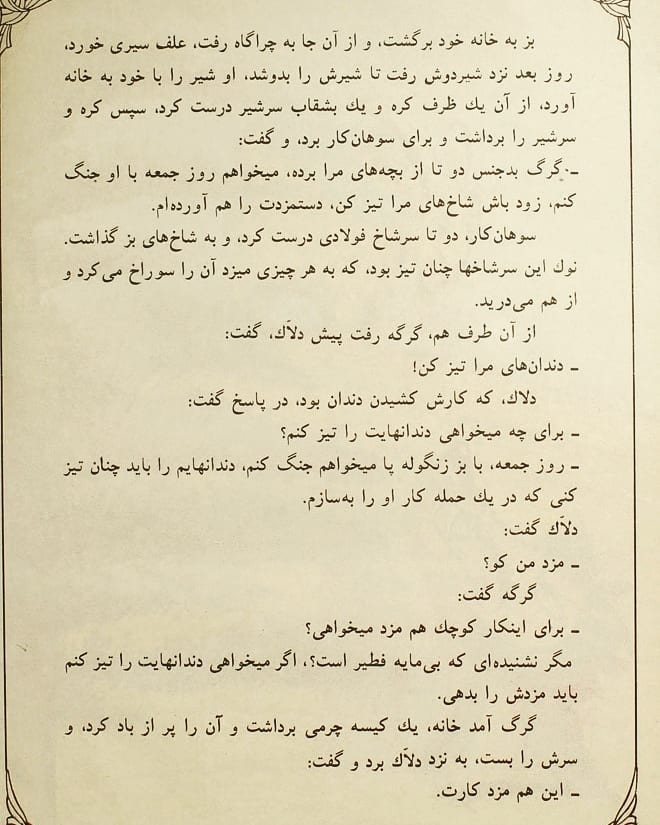 بز به خانه خود برگشت، و از آن جا به چراگاه رفت، علف سیری خورد،
روز بعد نزد شیردوش رفت تا شیرش را بدوشد، او شیر را با خود به خانه
آورد، از آن یك ظرف کره و یك بشقاب سرشیر درست کرد، سپس کره و
سرشیر را برداشت و برای سوهان‌کار برد، و گفت:
ـ گرگ بدجنس دو تا از بچه‌های مرا برده، میخواهم روز جمعه با او جنگ
کنم، زود باش شاخ‌های مرا تیز کن، دستمزدت را هم آورده‌ام.
سوهان‌کار، دو تا سرشاخ فولادی درست کرد، و به شاخ‌های بز گذاشت.
نوك این سرشاخها چنان تیز بود، که به هر چیزی میزد آن را سوراخ می‌کرد و
از هم می‌درید.
از آن طرف هم، گرگه رفت پیش دلاّك، گفت:
ـ دندان‌های مرا تیز کن!
دلاك، که کارش کشیدن دندان بود، در پاسخ گفت:
ـ برای چه میخواهی دندانهایت را تیز کنم؟
ـ روز جمعه، با بز زنگوله پا میخواهم جنگ کنم، دندانهایم را باید چنان تیز
کنی که در یك حمله کار او را به‌سازم.
دلاّك گفت:
ـ مزد من کو؟
گرگه گفت:
ـ برای اینکار کوچك هم مزد میخواهی؟
مگر نشنیده‌ای که بی‌مایه فطیر است؟، اگر میخواهی دندانهایت را تیز کنم
باید مزدش را بدهی.
گرگ آمد خانه، یك کیسه چرمی برداشت و آن را پر از باد کرد، و
سرش را بست، به نزد دلاّك برد و گفت:
ـ این هم مزد کارت.